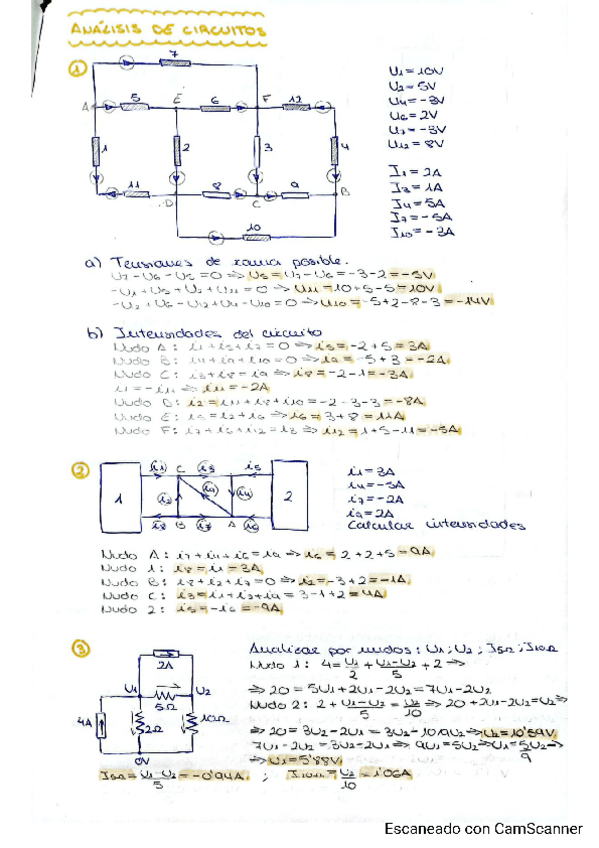 ANÁLISIS DE CIRCUITOS
1
7
A
5
E
6
F
12
1
2
3
4
11
D
8
C
9
B
10
U1 = 10V
U2 = 5V
U4 = -3V
U6 = 2V
U7 = -3V
U12 = 8V
I1 = 2A
I3 = 1A
I4 = 5A
I7 = -5A
I10 = -3A
a) Tensiones de rama posible.
U7 - U6 - U5 = 0 ⇒ U5 = U7 - U6 = -3 - 2 = -5V
-U1 + U5 + U2 + U11 = 0 ⇒ U11 = 10 + 5 - 5 = 10V
-U2 + U6 - U12 + U4 - U10 = 0 ⇒ U10 = -5 + 2 - 8 - 3 = -14V
b) Intensidades del circuito
Nudo A: i1 + i5 + i7 = 0 ⇒ i5 = -2 + 5 = 3A
Nudo B: i4 + i9 + i10 = 0 ⇒ i9 = -5 + 3 = -2A
Nudo C: i3 + i8 = i9 ⇒ i8 = -2 - 1 = -3A
i1 = -i11 ⇒ i11 = -2A
Nudo D: i2 = i11 + i8 + i10 = -2 - 3 - 3 = -8A
Nudo E: i5 = i2 + i6 ⇒ i6 = 3 + 8 = 11A
Nudo F: i7 + i6 + i12 = i3 ⇒ i12 = 1 + 5 - 11 = -5A
2
1
i1
C
i3
i5
2
i2
i9
i4
i8
B
i7
A
i6
i1 = 3A
i4 = -5A
i7 = -2A
i9 = 2A
Calcular intensidades
Nudo A: i7 + i4 + i6 = i9 ⇒ i6 = 2 + 2 + 5 = 9A
Nudo 1: i8 = i1 = 3A
Nudo B: i8 + i2 + i7 = 0 ⇒ i2 = -3 + 2 = -1A
Nudo C: i3 = i1 + i2 + i9 = 3 - 1 + 2 = 4A
Nudo 2: i5 = -i6 = -9A
3
2A
U1
5Ω
U2
4A
2Ω
10Ω
0V
Analizar por nudos: U1; U2; I5Ω; I10Ω
Nudo 1: 4 = U1/2 + (U1-U2)/5 + 2 ⇒
⇒ 20 = 5U1 + 2U1 - 2U2 = 7U1 - 2U2
Nudo 2: 2 + (U1-U2)/5 = U2/10 ⇒ 20 + 2U1 - 2U2 = U2 ⇒
⇒ 20 = 3U2 - 2U1 = 3U2 - 10/9U2 ⇒ U2 = 10'59V
7U1 - 2U2 = 3U2 - 2U1 ⇒ 9U1 = 5U2 ⇒ U1 = 5U2/9 ⇒
⇒ U1 = 5'88V
I5Ω = (U1-U2)/5 = -0'94A ; I10Ω = U2/10 = 1'06A
Escaneado con CamScanner